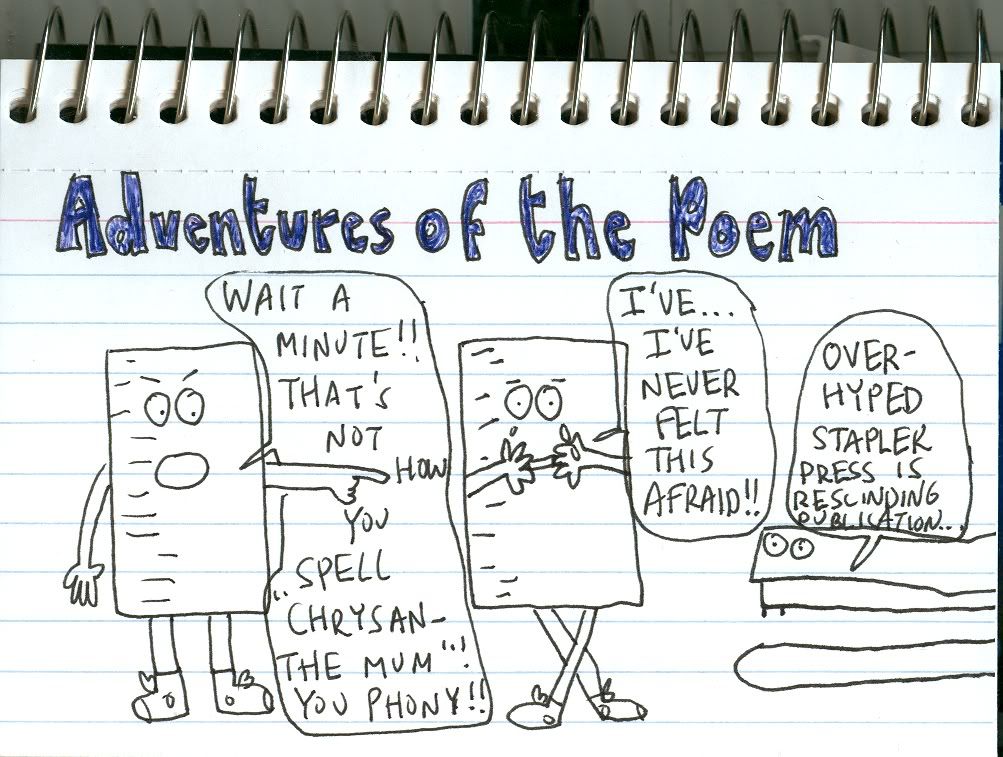 Adventures of the Poem
WAIT A
MINUTE!!
THAT'S
NOT
HOW
YOU
"SPELL
CHRYSAN-
THE MUM"!
YOU PHONY!!
I'VE...
I'VE
NEVER
FELT
THIS
AFRAID!!
OVER-
HYPED
STAPLER
PRESS IS
RESCINDING
PUBLICATION...